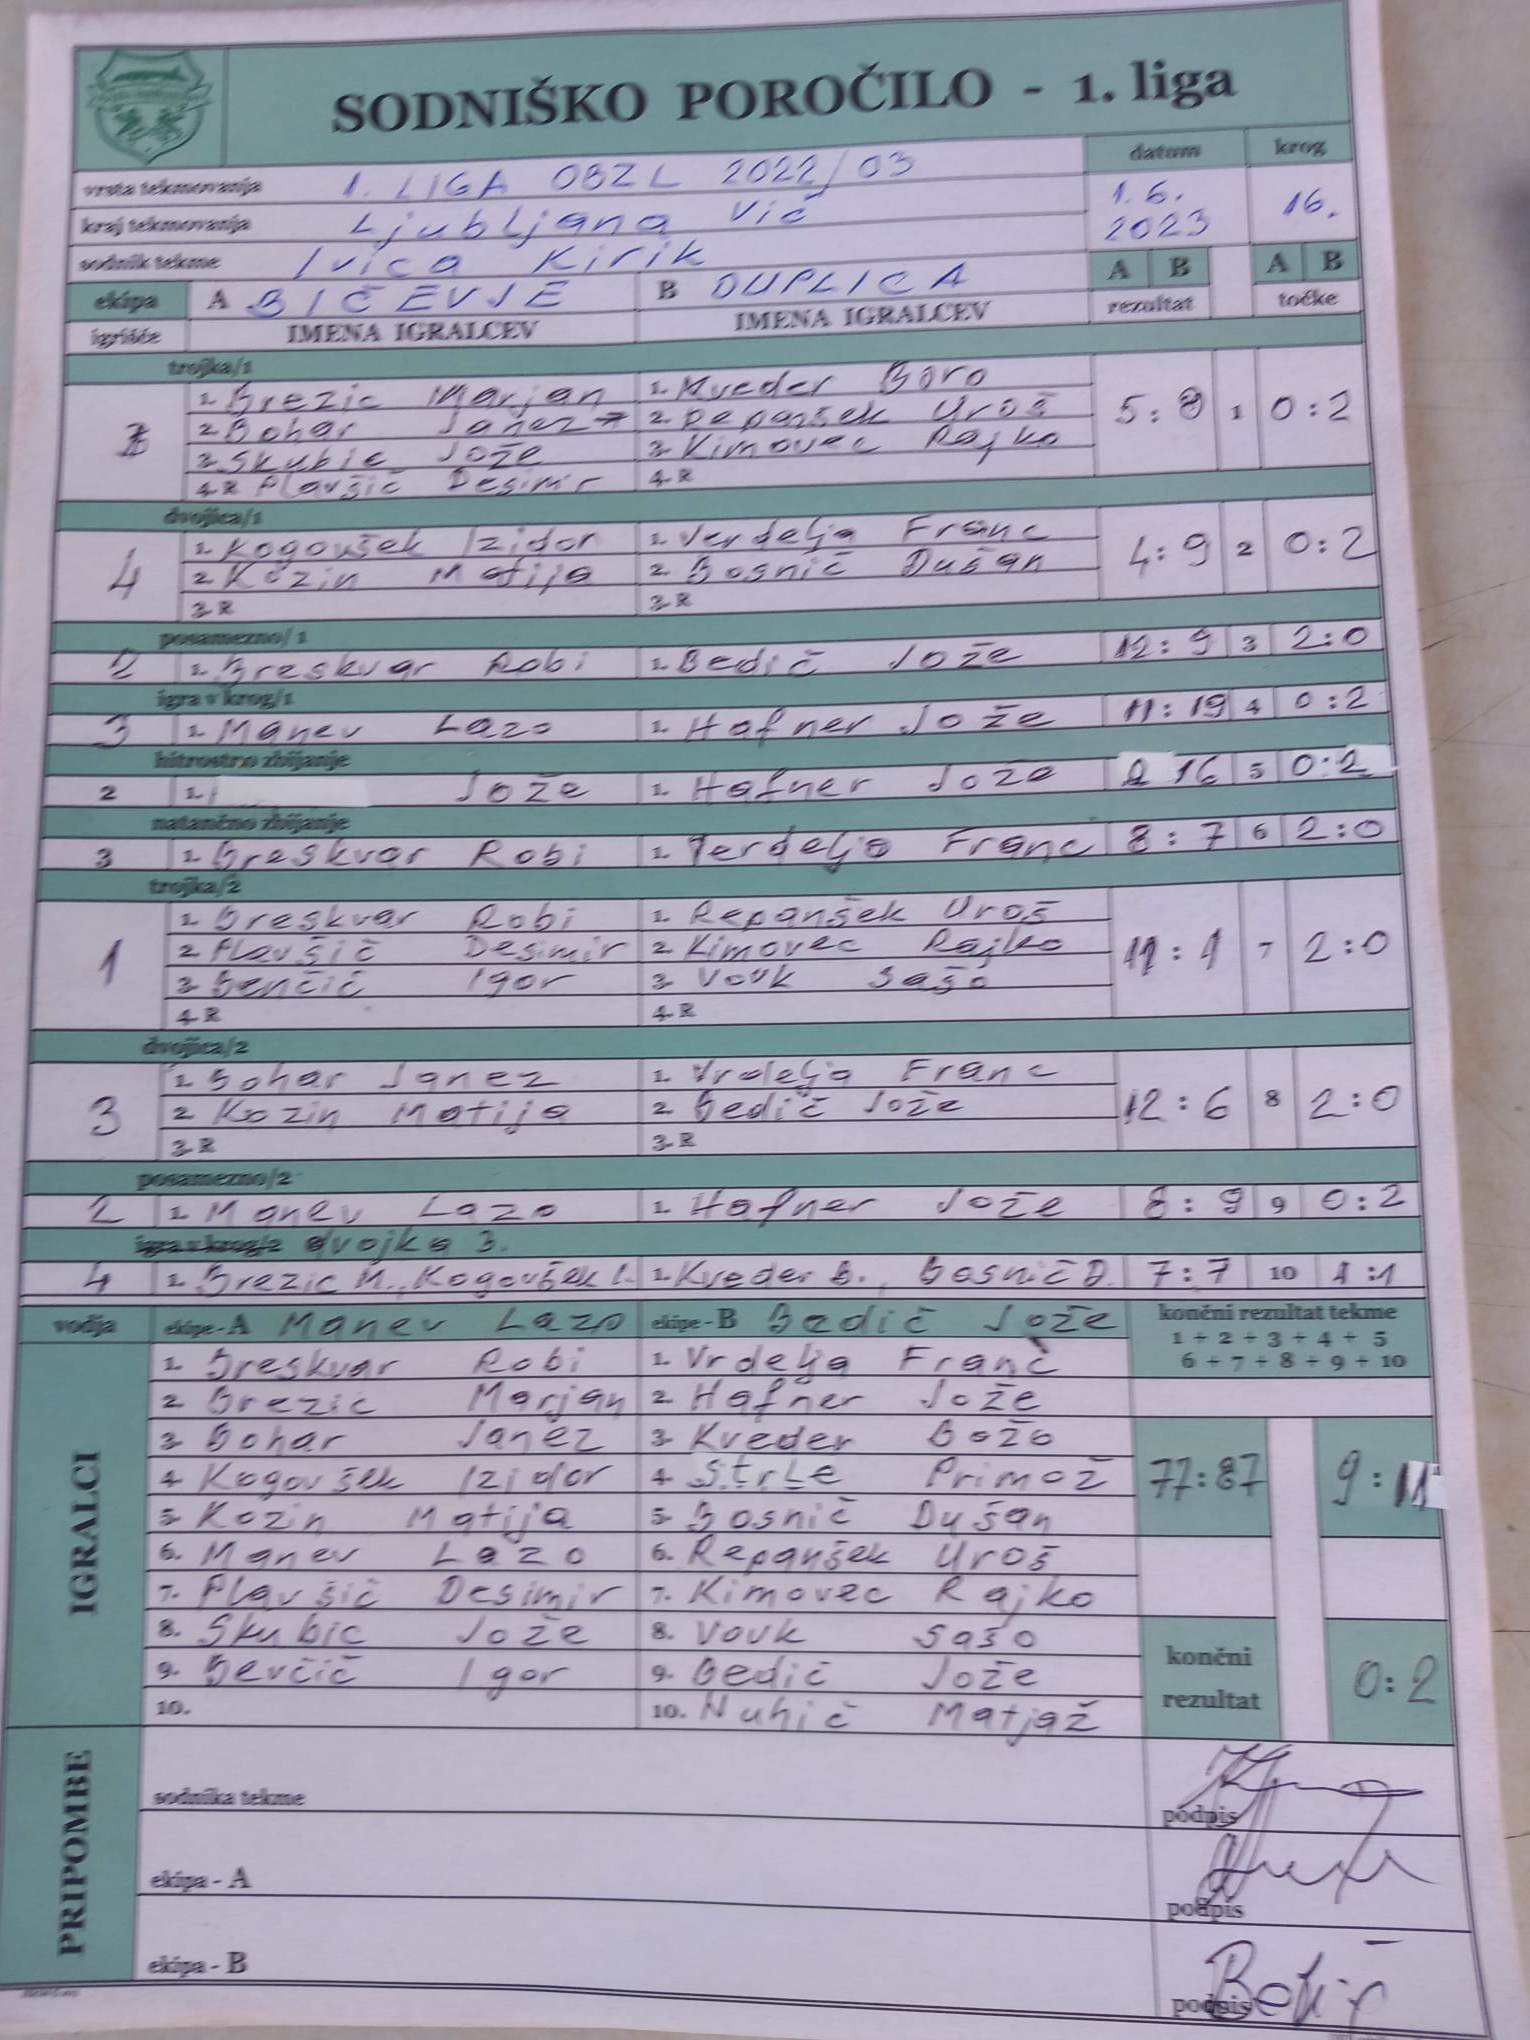 SODNIŠKO POROČILO - 1. liga
vrsta tekmovanja 1. LIGA OBZL 2022/03 datum krog
kraj tekmovanja Ljubljana Vič 1.6. 2023 16.
sodnik tekme Ivica Kirik A B A B
ekipa A BIČEVJE B DUPLICA rezultat točke
igrišče IMENA IGRALCEV IMENA IGRALCEV
trojka/1
1. Brezic Marjan 1. Kveder Boro
2. Bohar Janez 2. Repanšek Uroš 5:8 1 0:2
3. Skubic Jože 3. Kimovec Rajko
4. R Plavšič Desimir 4. R
dvojica/1
1. Kogovšek Izidor 1. Verdelja Franc
4 2. Kozin Matija 2. Bosnič Dušan 4:9 2 0:2
3. R 3. R
posamezno/1
2 1. Breskvar Robi 1. Bedič Jože 12:9 3 2:0
igra v krog/1
3 1. Manev Lazo 1. Hafner Jože 11:19 4 0:2
hitrostno zbijanje
2 1. Jože 1. Hafner Jože 16 5 0:2
natančno zbijanje
3 1. Breskvar Robi 1. Verdelja Franc 8:7 6 2:0
trojka/2
1. Breskvar Robi 1. Repanšek Uroš
1 2. Plavšič Desimir 2. Kimovec Rajko 11:1 7 2:0
3. Benčič Igor 3. Vovk Sašo
4. R 4. R
dvojica/2
1. Bohar Janez 1. Vrdelja Franc
3 2. Kozin Matija 2. Bedič Jože 12:6 8 2:0
3. R 3. R
posamezno/2
2 1. Manev Lazo 1. Hafner Jože 8:9 9 0:2
igra v krog/2 dvojka 3.
4 1. Brezic M., Kogovšek I. 1. Kveder B., Bosnič D. 7:7 10 1:1
vodja ekipe - A Manev Lazo ekipe - B Bedič Jože končni rezultat tekme
1 + 2 + 3 + 4 + 5
6 + 7 + 8 + 9 + 10
IGRALCI
1. Breskvar Robi 1. Vrdelja Franc
2. Brezic Marjan 2. Hafner Jože
3. Bohar Janez 3. Kveder Božo
4. Kogovšek Izidor 4. Strle Primož 77:87 9:11
5. Kozin Matija 5. Bosnič Dušan
6. Manev Lazo 6. Repanšek Uroš
7. Plavšič Desimir 7. Kimovec Rajko
8. Skubic Jože 8. Vovk Sašo
9. Bevčič Igor 9. Bedič Jože
10. 10. Nuhič Matjaž
končni rezultat 0:2
PRIPOMBE
sodnika tekme podpis
ekipa - A podpis
ekipa - B podpis